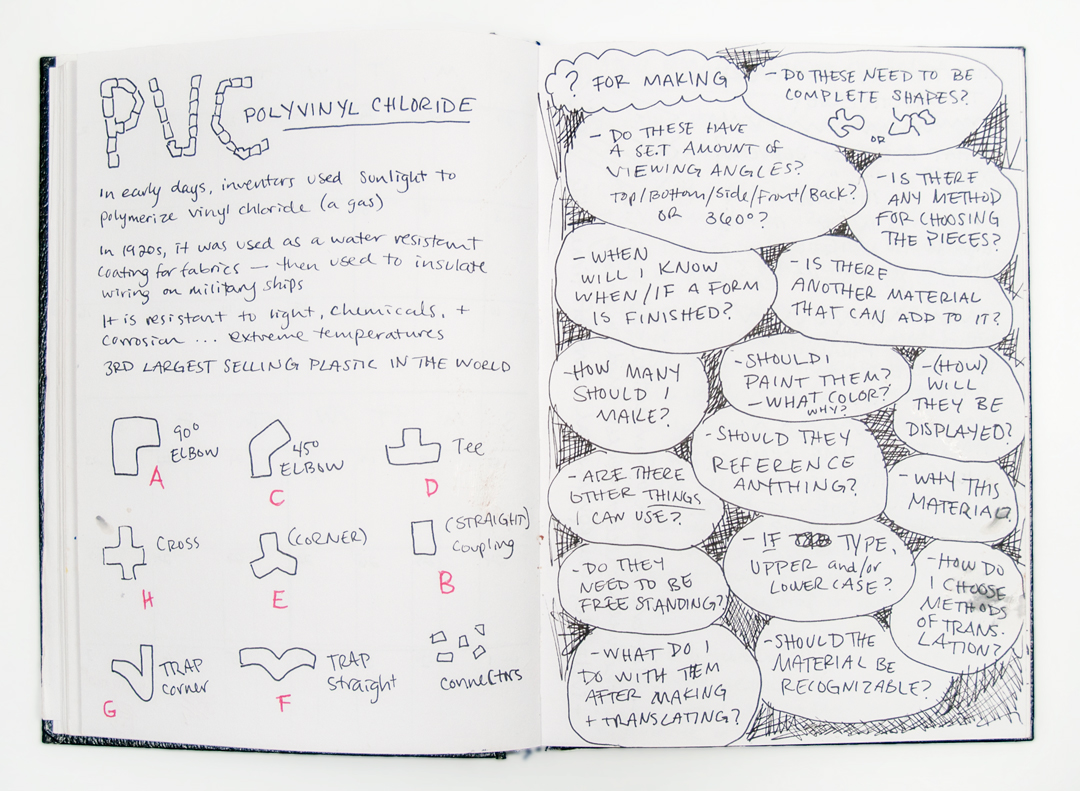 PVC POLYVINYL CHLORIDE
In early days, inventors used sunlight to
polymerize vinyl chloride (a gas)
In 1920s, it was used as a water resistant
coating for fabrics — then used to insulate
wiring on military ships
It is resistant to light, chemicals, +
corrosion ... extreme temperatures
3RD LARGEST SELLING PLASTIC IN THE WORLD
90°
ELBOW
A
45°
ELBOW
C
Tee
D
CROSS
H
(CORNER)
E
(STRAIGHT)
Coupling
B
TRAP
corner
G
TRAP
straight
F
connectors
? FOR MAKING
- DO THESE NEED TO BE
COMPLETE SHAPES?
OR
- DO THESE HAVE
A SET AMOUNT OF
VIEWING ANGLES?
TOP/Bottom/Side/Front/Back?
OR 360°?
- IS THERE
ANY METHOD
FOR CHOOSING
THE PIECES?
- WHEN
WILL I KNOW
WHEN/IF A FORM
IS FINISHED?
- IS THERE
ANOTHER MATERIAL
THAT CAN ADD TO IT?
- HOW MANY
SHOULD I
MAKE?
- SHOULD I
PAINT THEM?
- WHAT COLOR?
WHY?
- (HOW)
WILL
THEY BE
DISPLAYED?
- SHOULD THEY
REFERENCE
ANYTHING?
- ARE THERE
OTHER THINGS
I CAN USE?
- WHY THIS
MATERIAL
- IF TYPE,
UPPER and/or
LOWERCASE?
- DO THEY
NEED TO BE
FREE STANDING?
- HOW DO
I CHOOSE
METHODS
OF TRANS-
LATION?
- WHAT DO I
DO WITH THEM
AFTER MAKING
+ TRANSLATING?
- SHOULD THE
MATERIAL BE
RECOGNIZABLE?